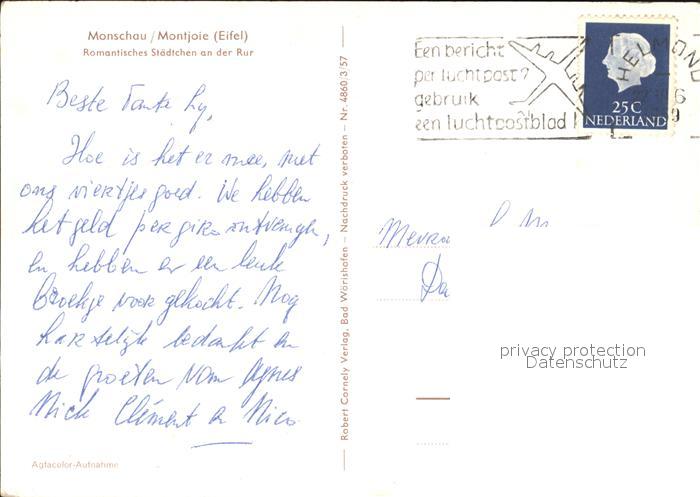 Monschau / Montjoie (Eifel)
Romantisches Städtchen an der Rur
Beste Tante Ly,
Hoe is het er mee, met
ons viertjes goed. We hebben
het geld per giro ontvangen,
en hebben er een leuk
Broekje voor gekocht. Nog
hartelijk bedankt en
de groeten van Agnes
Nick Clément en Nico
Agfacolor-Aufnahme
Robert Cornely Verlag, Bad Wörishofen – Nachdruck verboten – Nr. 4860/3/57
Een bericht
per luchtpost?
gebruik
een luchtpostblad!
HELMOND
25 C
NEDERLAND
Mevro
Da
privacy protection
Datenschutz